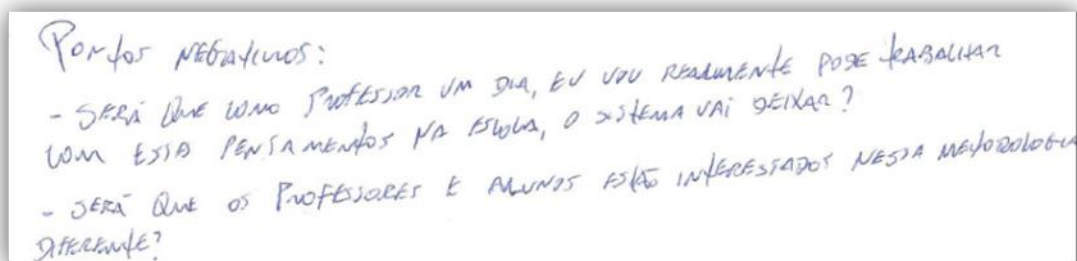 PONTOS NEGATIVOS:
- SERÁ QUE COMO PROFESSOR UM DIA, EU VOU REALMENTE PODE TRABALHAR
COM ESTA PENSAMENTOS NA ESCOLA, O SISTEMA VAI DEIXAR?
- SERÁ QUE OS PROFESSORES E ALUNOS ESTÃO INTERESSADOS NESTA METODOLOGIA
DIFERENTE?